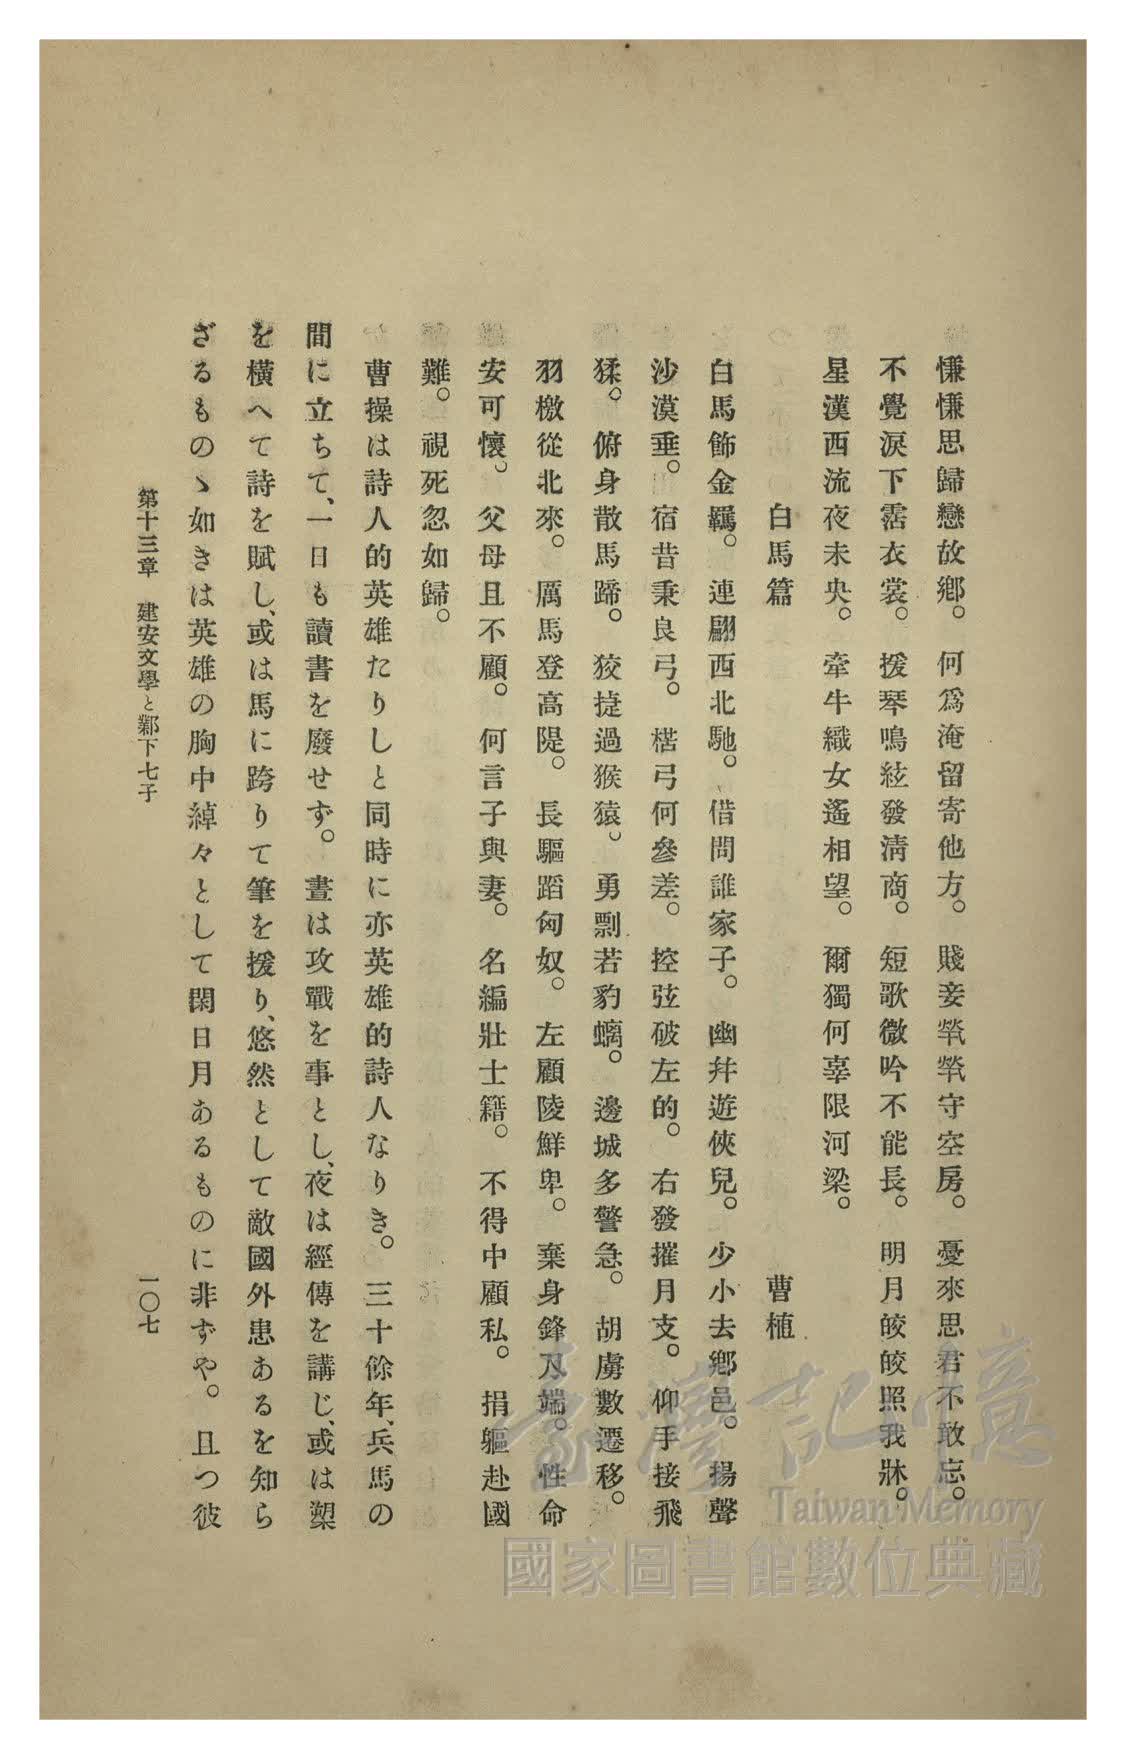 慊慊思歸戀故鄕。何爲淹留寄他方。賤妾煢煢守空房。憂來思君不敢忘。
不覺淚下霑衣裳。援琴鳴絃發淸商。短歌微吟不能長。明月皎皎照我牀。
星漢西流夜未央。牽牛織女遙相望。爾獨何辜限河梁。
白馬篇 曹植
白馬飾金羈。連翩西北馳。借問誰家子。幽幷遊俠兒。少小去鄕邑。揚聲
沙漠垂。宿昔秉良弓。楛弓何參差。控弦破左的。右發摧月支。仰手接飛
猱。俯身散馬蹄。狡捷過猴猿。勇剽若豹螭。邊城多警急。胡虜數遷移。
羽檄從北來。厲馬登高隄。長驅蹈匈奴。左顧陵鮮卑。棄身鋒刄端。性命
安可懷。父母且不顧。何言子與妻。名編壯士籍。不得中顧私。捐軀赴國
難。視死忽如歸。
曹操は詩人的英雄たりしと同時に亦英雄的詩人なりき。三十餘年、兵馬の
間に立ちて、一日も讀書を廢せず。晝は攻戰を事とし、夜は經傳を講じ、或は槊
を橫へて詩を賦し、或は馬に跨りて筆を援り、悠然として敵國外患あるを知ら
ざるものゝ如きは英雄の胸中綽々として閑日月あるものに非ずや。且つ彼
第十三章 建安文學と鄴下七子 一〇七
臺灣記憶
Taiwan Memory
國家圖書館數位典藏